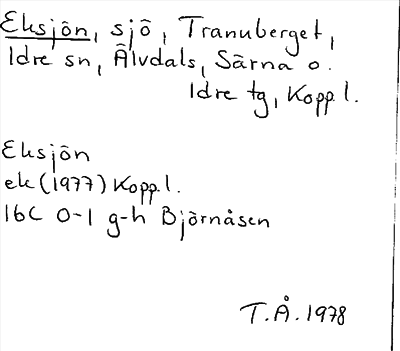 Eksjön, sjö, Tranuberget,
Idre sn, Älvdals, Särna o.
Idre tg, Kopp.l.
Eksjön
ek (1977) Kopp.l.
16C 0-1 g-h Björnåsen
T.Å. 1978